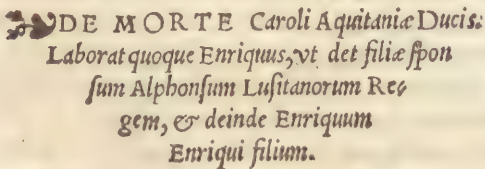 DE MORTE Caroli Aquitaniæ Ducis.
Laborat quoque Enriquus, vt det filiæ ſpon
ſum Alphonſum Luſitanorum Re
gem, & deinde Enriquum
Enriqui filium.